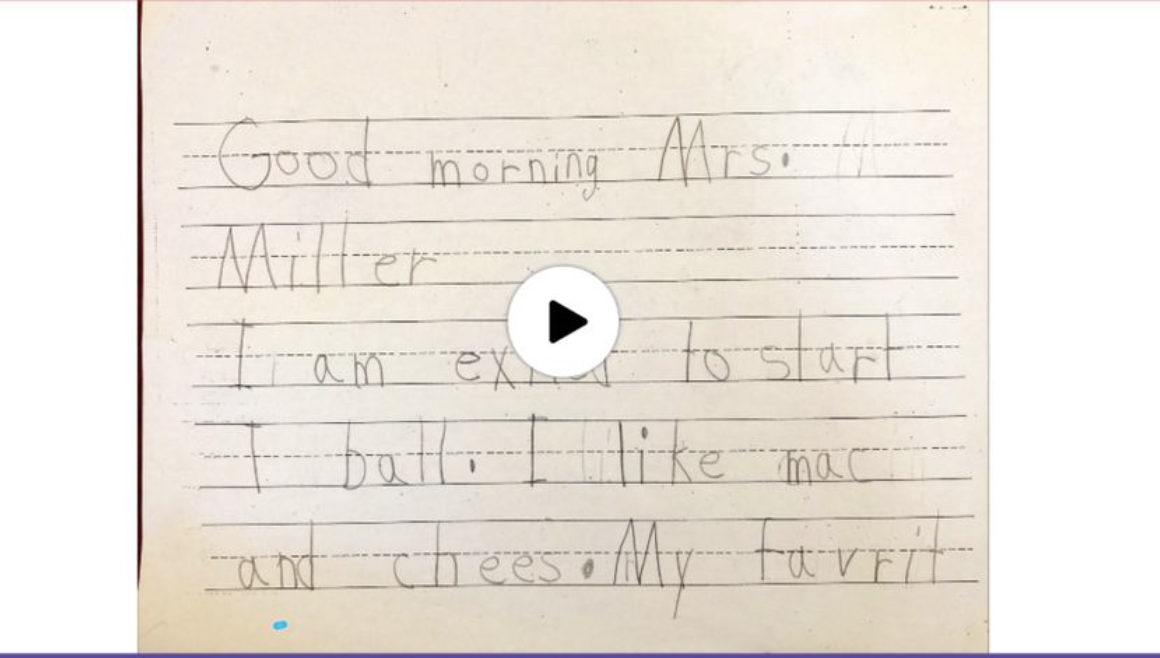 Good morning Mrs.
Miller
I am to start
T ball. I like mac
and chees. My favrit